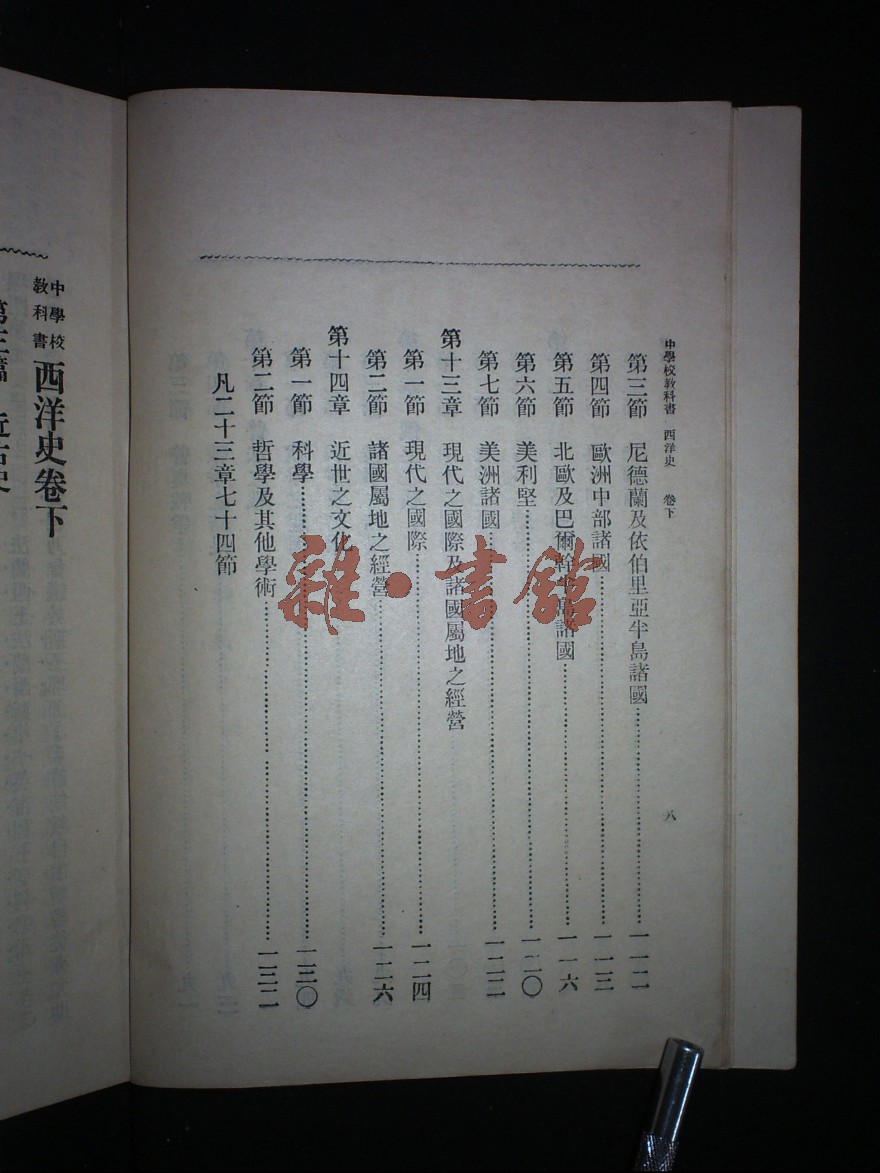 中學校教科書 西洋史 卷下 八
第三節 尼德蘭及依伯里亞半島諸國 一一二
第四節 歐洲中部諸國 一一三
第五節 北歐及巴爾幹半島諸國 一一六
第六節 美利堅 一二〇
第七節 美洲諸國 一二二
第十三章 現代之國際及諸國屬地之經營
第一節 現代之國際 一二四
第二節 諸國屬地之經營 一二六
第十四章 近世之文化
第一節 科學 一三〇
第二節 哲學及其他學術 一三二
凡二十三章七十四節
雜·書館
中學校教科書 西洋史卷下
第三篇 近古史